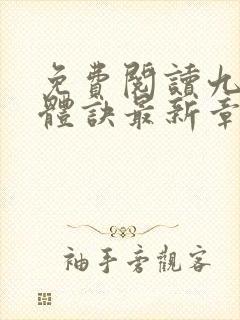 免費閱讀九
體訣最新章
袖手旁觀客